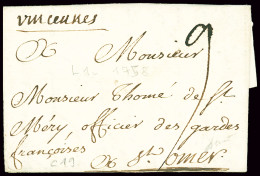 vincennes
A Monsieur
Monsieur Thomé de St
Méry, officier des gardes
françoises
A St. omer